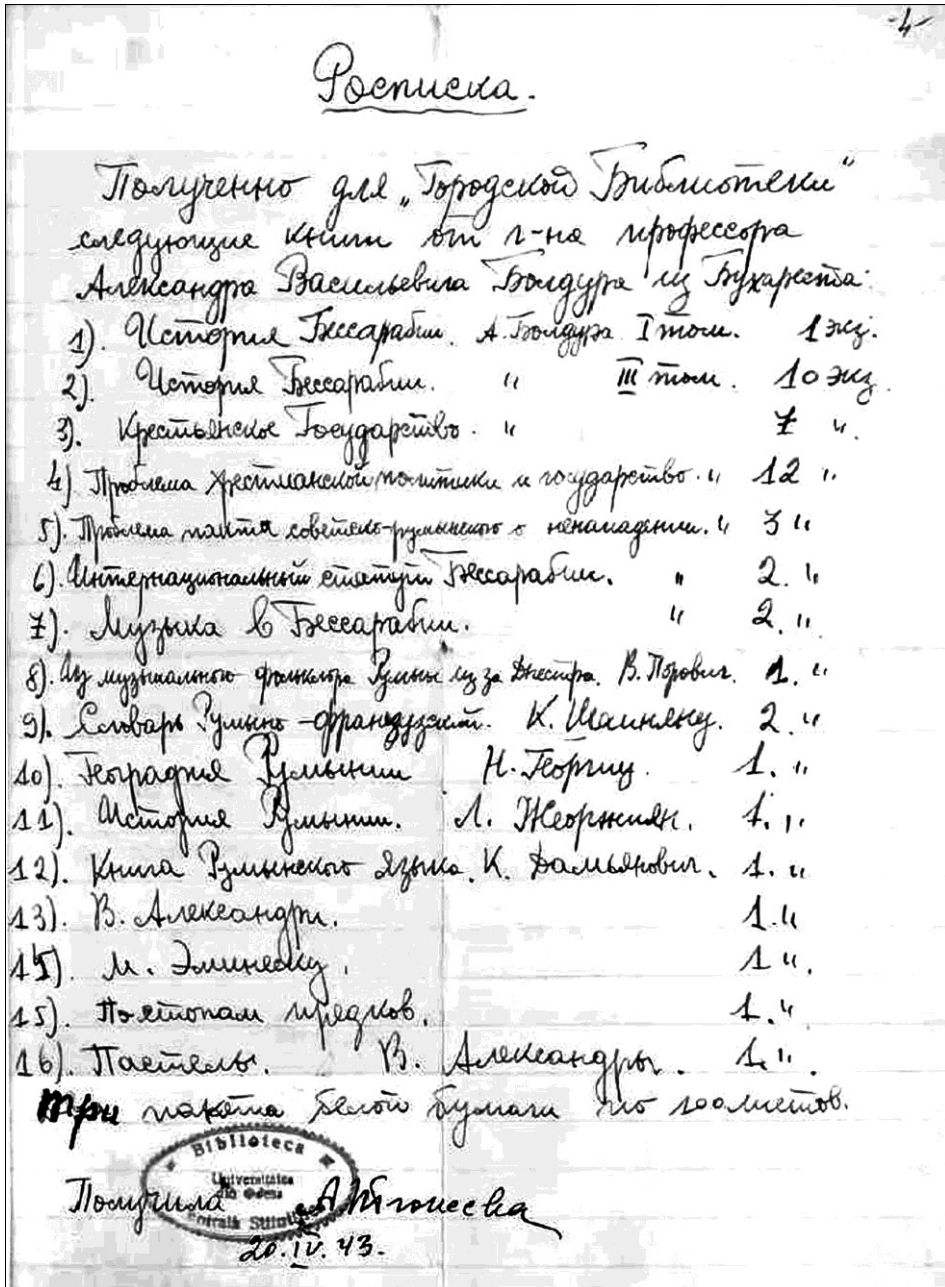 -4-
Росписка.
Полученно для „Городской Библиотеки"
следующие книги от г-на профессора
Александра Васильевича Болдура из Бухареста:
1). История Бессарабии. А. Болдура I том. 1 экз.
2). История Бессарабии. " III том. 10 экз
3). Крестьянское Государство. " 7 ".
4) Проблема крестианской политики и государство. " 12 ".
5). Проблема пакта советско-румынского о ненападении. " 3 "
6). Интернациональный статут Бессарабии. " 2. "
7). Музыка в Бессарабии. " 2. "
8). Из музыкального фольклора Румын из за Днестра. В. Попович. 1. "
9). Словарь Румыно-французский. К. Шаиняну. 2. "
10). География Румынии Н. Георгиу. 1. "
11). История Румынии. Л. Жеоржиян. 1. "
12). Книга Румынского языка. К. Дамьянович. 1. "
13). В. Александри. 1. "
15). М. Эминеску. 1 ".
15). По стопам предков. 1. "
16). Пастель. В. Александры. 1. ".
три пакета белой бумаги по листов.
Biblioteca
Universitatea
din Odesa
Centrală
Получила А.
20. IV. 43.